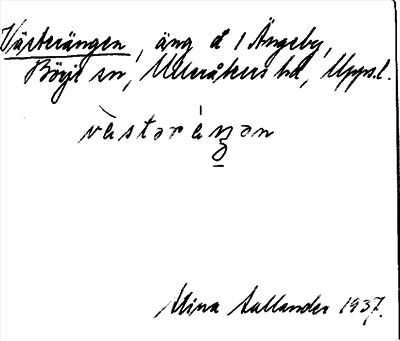 Västerängen, äng å 1 Ängeby,
Börje sn, Ulleråkers hd, Upps.l.
västəräŋən
Stina Aullander 1937.